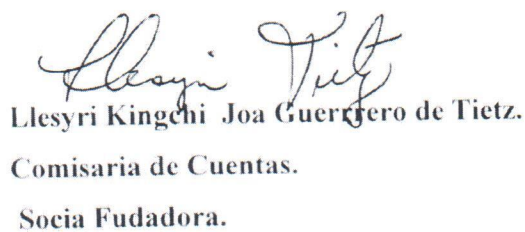 Llesyri Tietz
Llesyri Kingchi Joa Guerrrero de Tietz.
Comisaria de Cuentas.
Socia Fudadora.